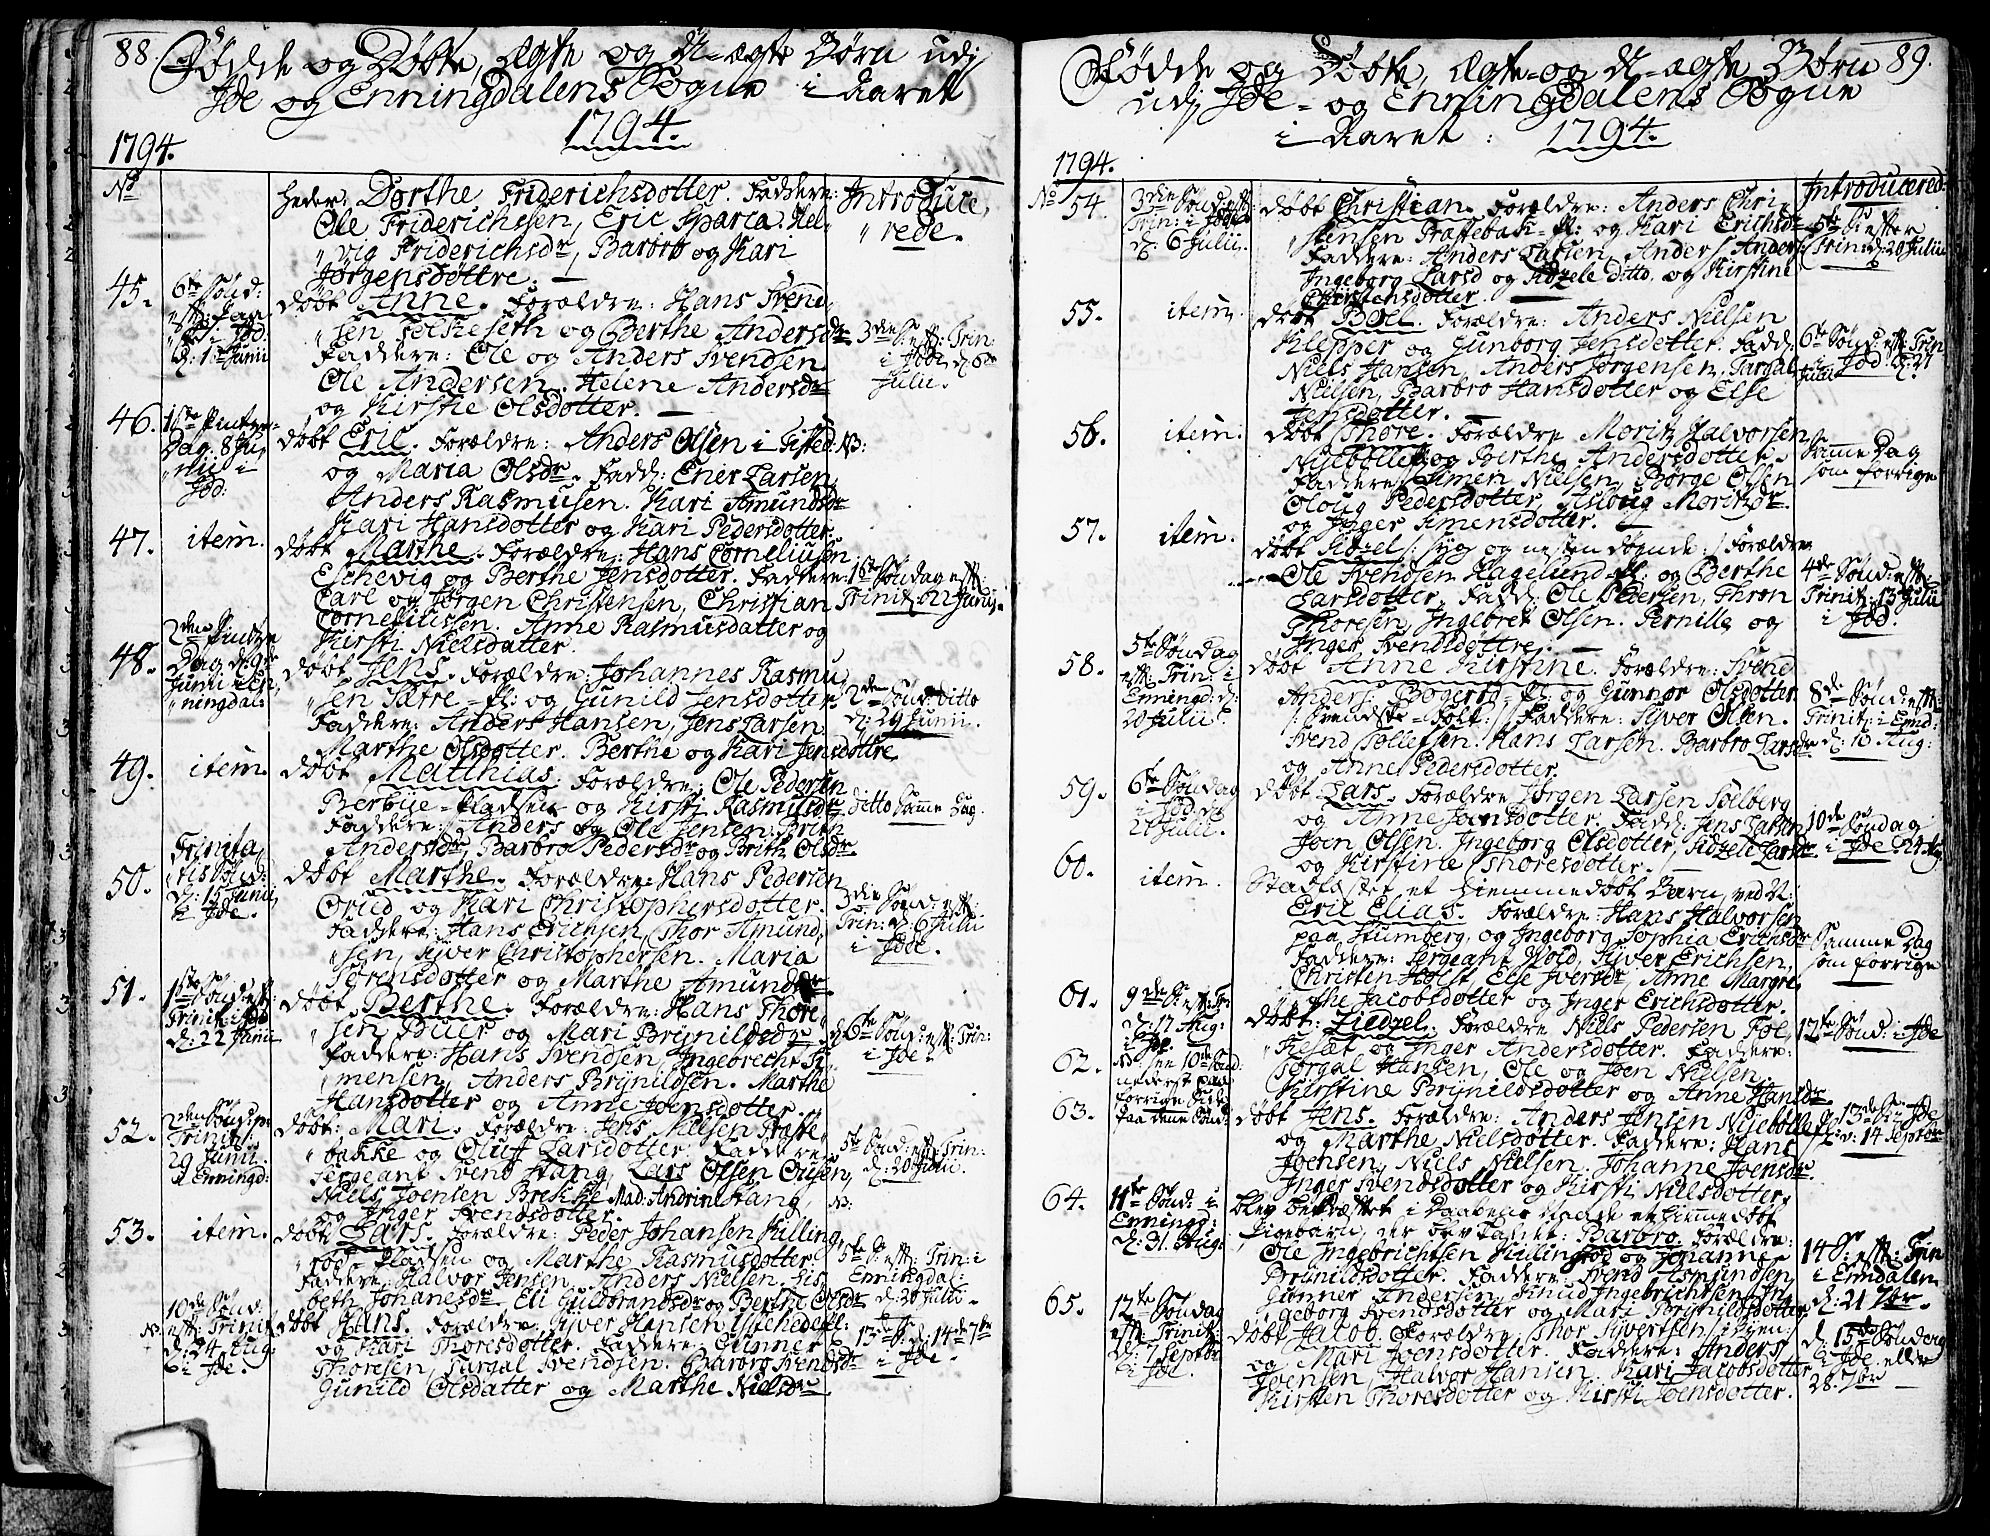 88. Fødde og Døbte, ægte og U-ægte Børn udj
Ide og Enningdalens Sogne i Aaret
1794.
1794.
No
heder: Dorthe Friderichsdotter. Faddere: Introduce,
Ole Friderichssen, Eric Sparca. Hel,
" rede.
"vig Friderichsdr, Barbro og Kari
Jörgensdøttre.
45. 6te Sønd:
døbt Anne. Forældre: Hans Svend,
"sen og Berthe Andersdr
Faddere: Ole og Anders Svendsen
Ole Andersen. Helene Andersdr
og Kirstie Olsdotter.
3die S: eft: Trin:
i Idd: d: 6te
Julii.
46. 1ste Pintze-
Dag. 8 Ju,
"nii i
Idd:
døbt Eric. Forældre: Anders Olsen i Tisted. NB:
og Maria Olsdr. Fadd: Erier Larsen,
Anders Rasmusen. Kari Amundsdr
Kari Hansdotter og Kari Pedersdotter.
47. item.
døbt Marthe. Forældre: Hans Corneliusen
Eschevig og Berthe Jensdotter. Faddere:
Carl og Jørgen Christensen, Christian
Corneliussen. Anne Rasmusdatter og
Kirsti Nielsdatter.
1ste Søndag eft:
Trinit: 22 Junij.
48. 2den Pintze
Dag d: 9de
Junii i En,
"ningdal:
døbt Jens. Forældre: Johannes Rasmu,
"sen Sætre-Pl: og Gunild Jensdotter.
Faddere: Anders Hansen, Jens Larsen
Marthe Olsdotter. Berthe og Kari Jensdøttre.
2den Sønd: Ditto
d: 29 Junii.
49. item.
døbt Matthias. Forældre: Ole Pedersen
Berbye-Pladsen og Kirsti Rasmusdr
Faddere: Anders og Ole Jensen. Brith
Andersdr, Barbro Pedersdr og Brith Olsdr.
ditto Samme Dag.
50. Trinita,
"tis Sønd:
d: 15 Junii,
i Ide.
døbt Marthe. Forældre: Hans Pedersen
Orud og Kari Christophersdotter.
Faddere: Hans Erichsen, Thor Amund,
"sen, Syver Christophersen. Maria
Sørensdotter og Marthe Amundsdr.
3die Sønd: eft:
Trin: d: 6 Julii
i Ide.
51. 1ste Sønd: eft:
Trinit: i Idd
d: 22 Junii
døbt Berthe. Forældre: Hans Thore,
"sen Buer og Mari Brynildsdr.
Faddere: Hans Svendsen, Ingebrecht Si,
"mensen, Anders Brynildsen. Marthe
Hansdotter og Anne Joensdotter.
6te Sønd: eft: Trin:
i Ide.
52. 2den Sønd: p:
Trinit:
29 Junii.
i Enningd:
døbt: Mari. Forældre: Jens Nielsen Præste,
"bakke og Oluff Larsdotter. Faddere:
Sergeant Svend Stang, Lars Olsen
Niels Joensen Brekke Mad: Andrine Stang,
og Inger Svendsdotter.
5te Sønd: eft: Trin:
d: 20 Julii.
NB:
53. item.
døbt Lars. Forældre: Peder Johansen Killing,
"rød Pladsen og Marthe Rasmusdotter.
Faddere: Halvor Jensen, Anders Nielsen. Lis,
beth Johanesdr. Eli Guldbrandsdr og Berthe Olsdr
5te S: eft: Trin: i
Enningdal:
d: 20 Julii.
NB:
10de Sønd:
eft: Trinit:
d: 24 Aug:
i Ide.
døbt Hans. Forældre: Syver Hansen
og Kari Thoresdotter. Faddere: Gunner
Thoresen, Targal Svendsen. Barbro Svendsdr
Gunild Olsdatter og Marthe Nielsdr.
13de S: d: 14de 7br
i Ide.
Fødde og Døbte, ægte- og U-ægte Børn 89.
udj Ide- og Enningdalens Sogne
i Aaret: 1794.
1794.
No
Introducered:
54. 3die Sønd: eft:
Trin: i Idd
d: 6 Julii.
døbt Christian. Forældre: Anders Chri,
"stensen Præstebak-Pl: og Kari Erichsdr
Faddere: Anders Larsen, Anders Anders:
Ingeborg Larsd og Sidzele ditto og Kirstine
Christensdotter.
5te S: efter
Trin: d: 20 Julii
55. item.
døbt Boel. Forældre: Anders Nielsen
Klepper og Gunborg Jensdotter. Fadd:
Niels Hansen, Anders Jørgensen, Targal
Nielsen, Barbro Hansdotter og Else
Jensdotter.
6te Sønd: eft: Trin
i Idd: d: 27
Julii
56. item.
døbt Thore. Forældre Moritz Halvorsen
Nisebølle og Berthe Andersdotter.
Faddere: Simen Nielsen, Børge Olsen
Oloug Pedersdotter, Asloug Moritzdr.
og Inger Simensdotter.
Samme Dag
som forrige
57. item.
døbt Sidzel /: syg og næsten døende:/ Forældre
Ole Svendsen Hagelund-Pl: og Berthe
Larsdotter. Fadd: Ole Pedersen, Thron
Thoresen, Ingebret Olsen. Pernille og
Inger Svendsdøttre.
4de Sønd: eft:
Trinit: 13 Julii
i Idd.
58. 5te Søndag
eft: Trin: i
Enningd: d:
20 Julii.
døbt Anne Kirstine. Forældre: Svend
Anders: Bogerød-Pl: og Gunnor Olsdotter
/: Svendske-Folk:/ Faddere: Syver Olsen.
Svend Tollefsen. Hans Larsen. Barbro Larsdr
og Anne Pedersdotter.
8de Sønd: eft:
Trinit: i Ennd:
d: 10 Aug:
59. 6te Søndag
i Idd d:
27 Julii.
døbt Lars. Forældre Jørgen Larsen Solberg
og Anne Joensdotter. Fadd: Jens Larsen
Joen Olsen. Ingeborg Olsdotter, Sidzele Larsdr
og Kirstine Thoresdotter.
10de Søndag
i Ide 24 Aug
60. item.
Stadfæstet et hiemmedøbt Barn, ved N:
Eric Elias. Forældre: Hans Halvorsen
paa Stumberg, og Ingeborg Sophia Erichsdr
Faddere: Sergeant Wold, Syver Erichsen,
Christen Holst Else Iversdr, Anne Margre,
"the Jacobsdotter og Inger Erichsdotter.
Samme Dag
som forrige
61. 9de S: eft: Tr:
d: 17 Aug:
i Ide.
døbt: Ziedzel. Forældre Niels Pedersen Foe,
"Kesæt og Inger Andersdotter. Faddere:
Torgal Hansen, Ole og Joen Nielsen,
Kirstine Brynildsdotter og Anne Hansdr.
12te Sønd: i Ide
62. NB: see 10de Sønd:
nederst paa
forrige Side
63. paa denne Sønd:
døbt Jens. Forældre: Anders Jensen Nisebølle
og Marthe Nielsdotter. Faddere: Hans
Joensen, Niels Nielsen. Johanne Joensdr.
Inger Svendsdotter og Kirsti Nielsdotter.
13de S: i Ide
d: 14 Septbr
64. 11te Sønd: i
Enningd:
d: 31 Aug:
blev bekræftet i Daabens Naade et hiemmedøbt
Pigebarn, der blev kaldet: Barbro. Forældre:
Ole Ingebrichtsen og Johanne
Brynildsdotter. Faddere: Svend Asmundsen,
Gunner Andersen, Knud Ingebrichtsen, In,
"geborg Svendsdotter og Mari Brynildsdotter.
14de S: eft: Trin
i Enndalen
d: 21 7br.
65. 12te Søndag
eft: Trinit:
d: 7 Septbr
i Ide.
døbt Jacob. Forældre: Thor Syvertsen i Byen:
og Mari Joensdotter. Faddere: Anders
Joensen, Halvor Hansen. Kari Jacobsdotter
Kirsten Thoresdotter og Kirsti Joensdotter.
d: 15de Søndag
i Ide eller
28. 7br